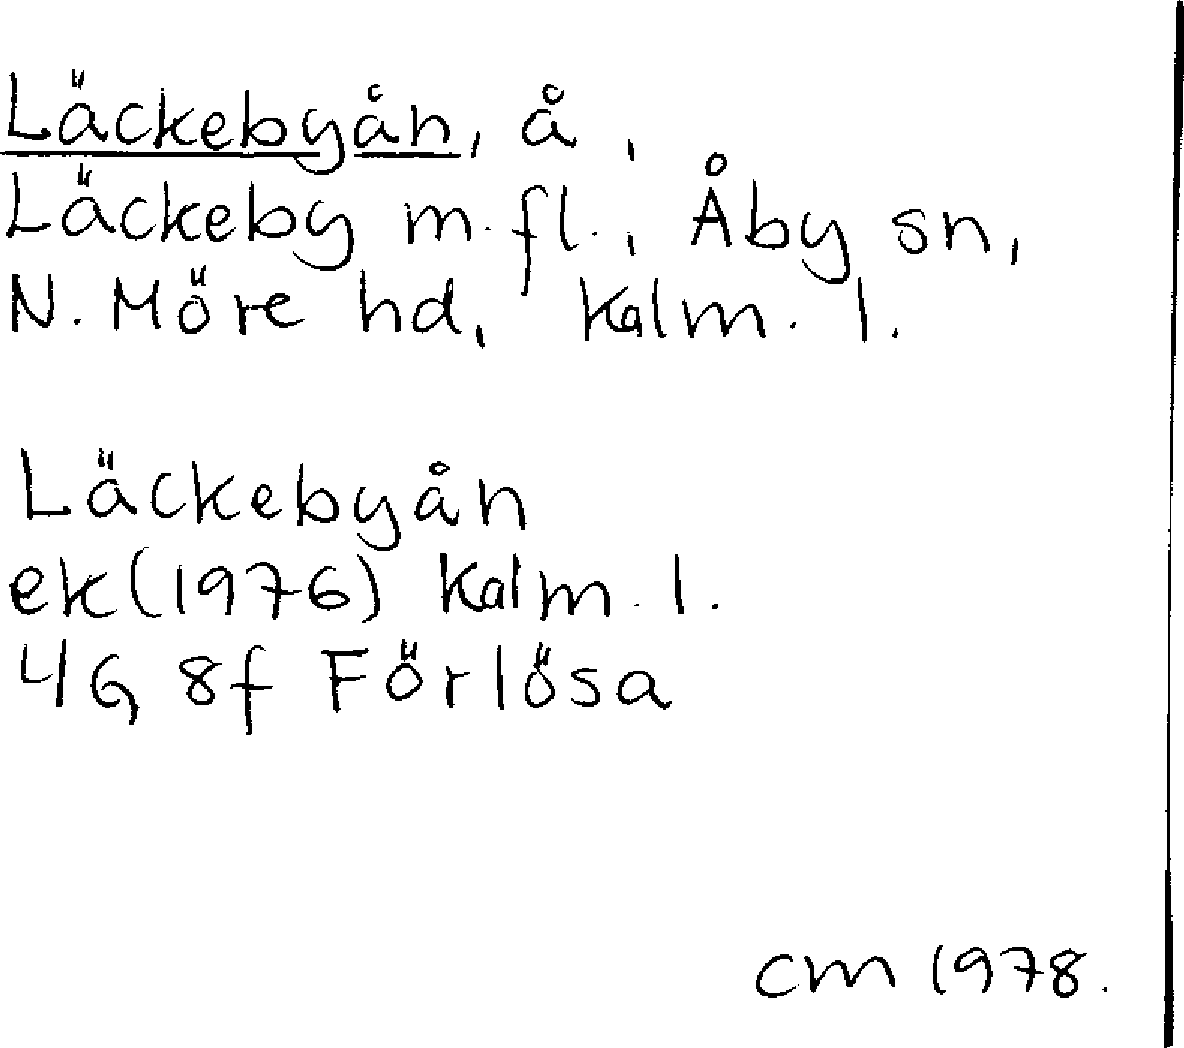 Läckebyån, å,
Läckeby m.fl., Åby sn,
N. Möre hd, Kalm. l.
Läckebyån
ek(1976) Kalm. l.
4G 8f Förlösa
cm 1978.